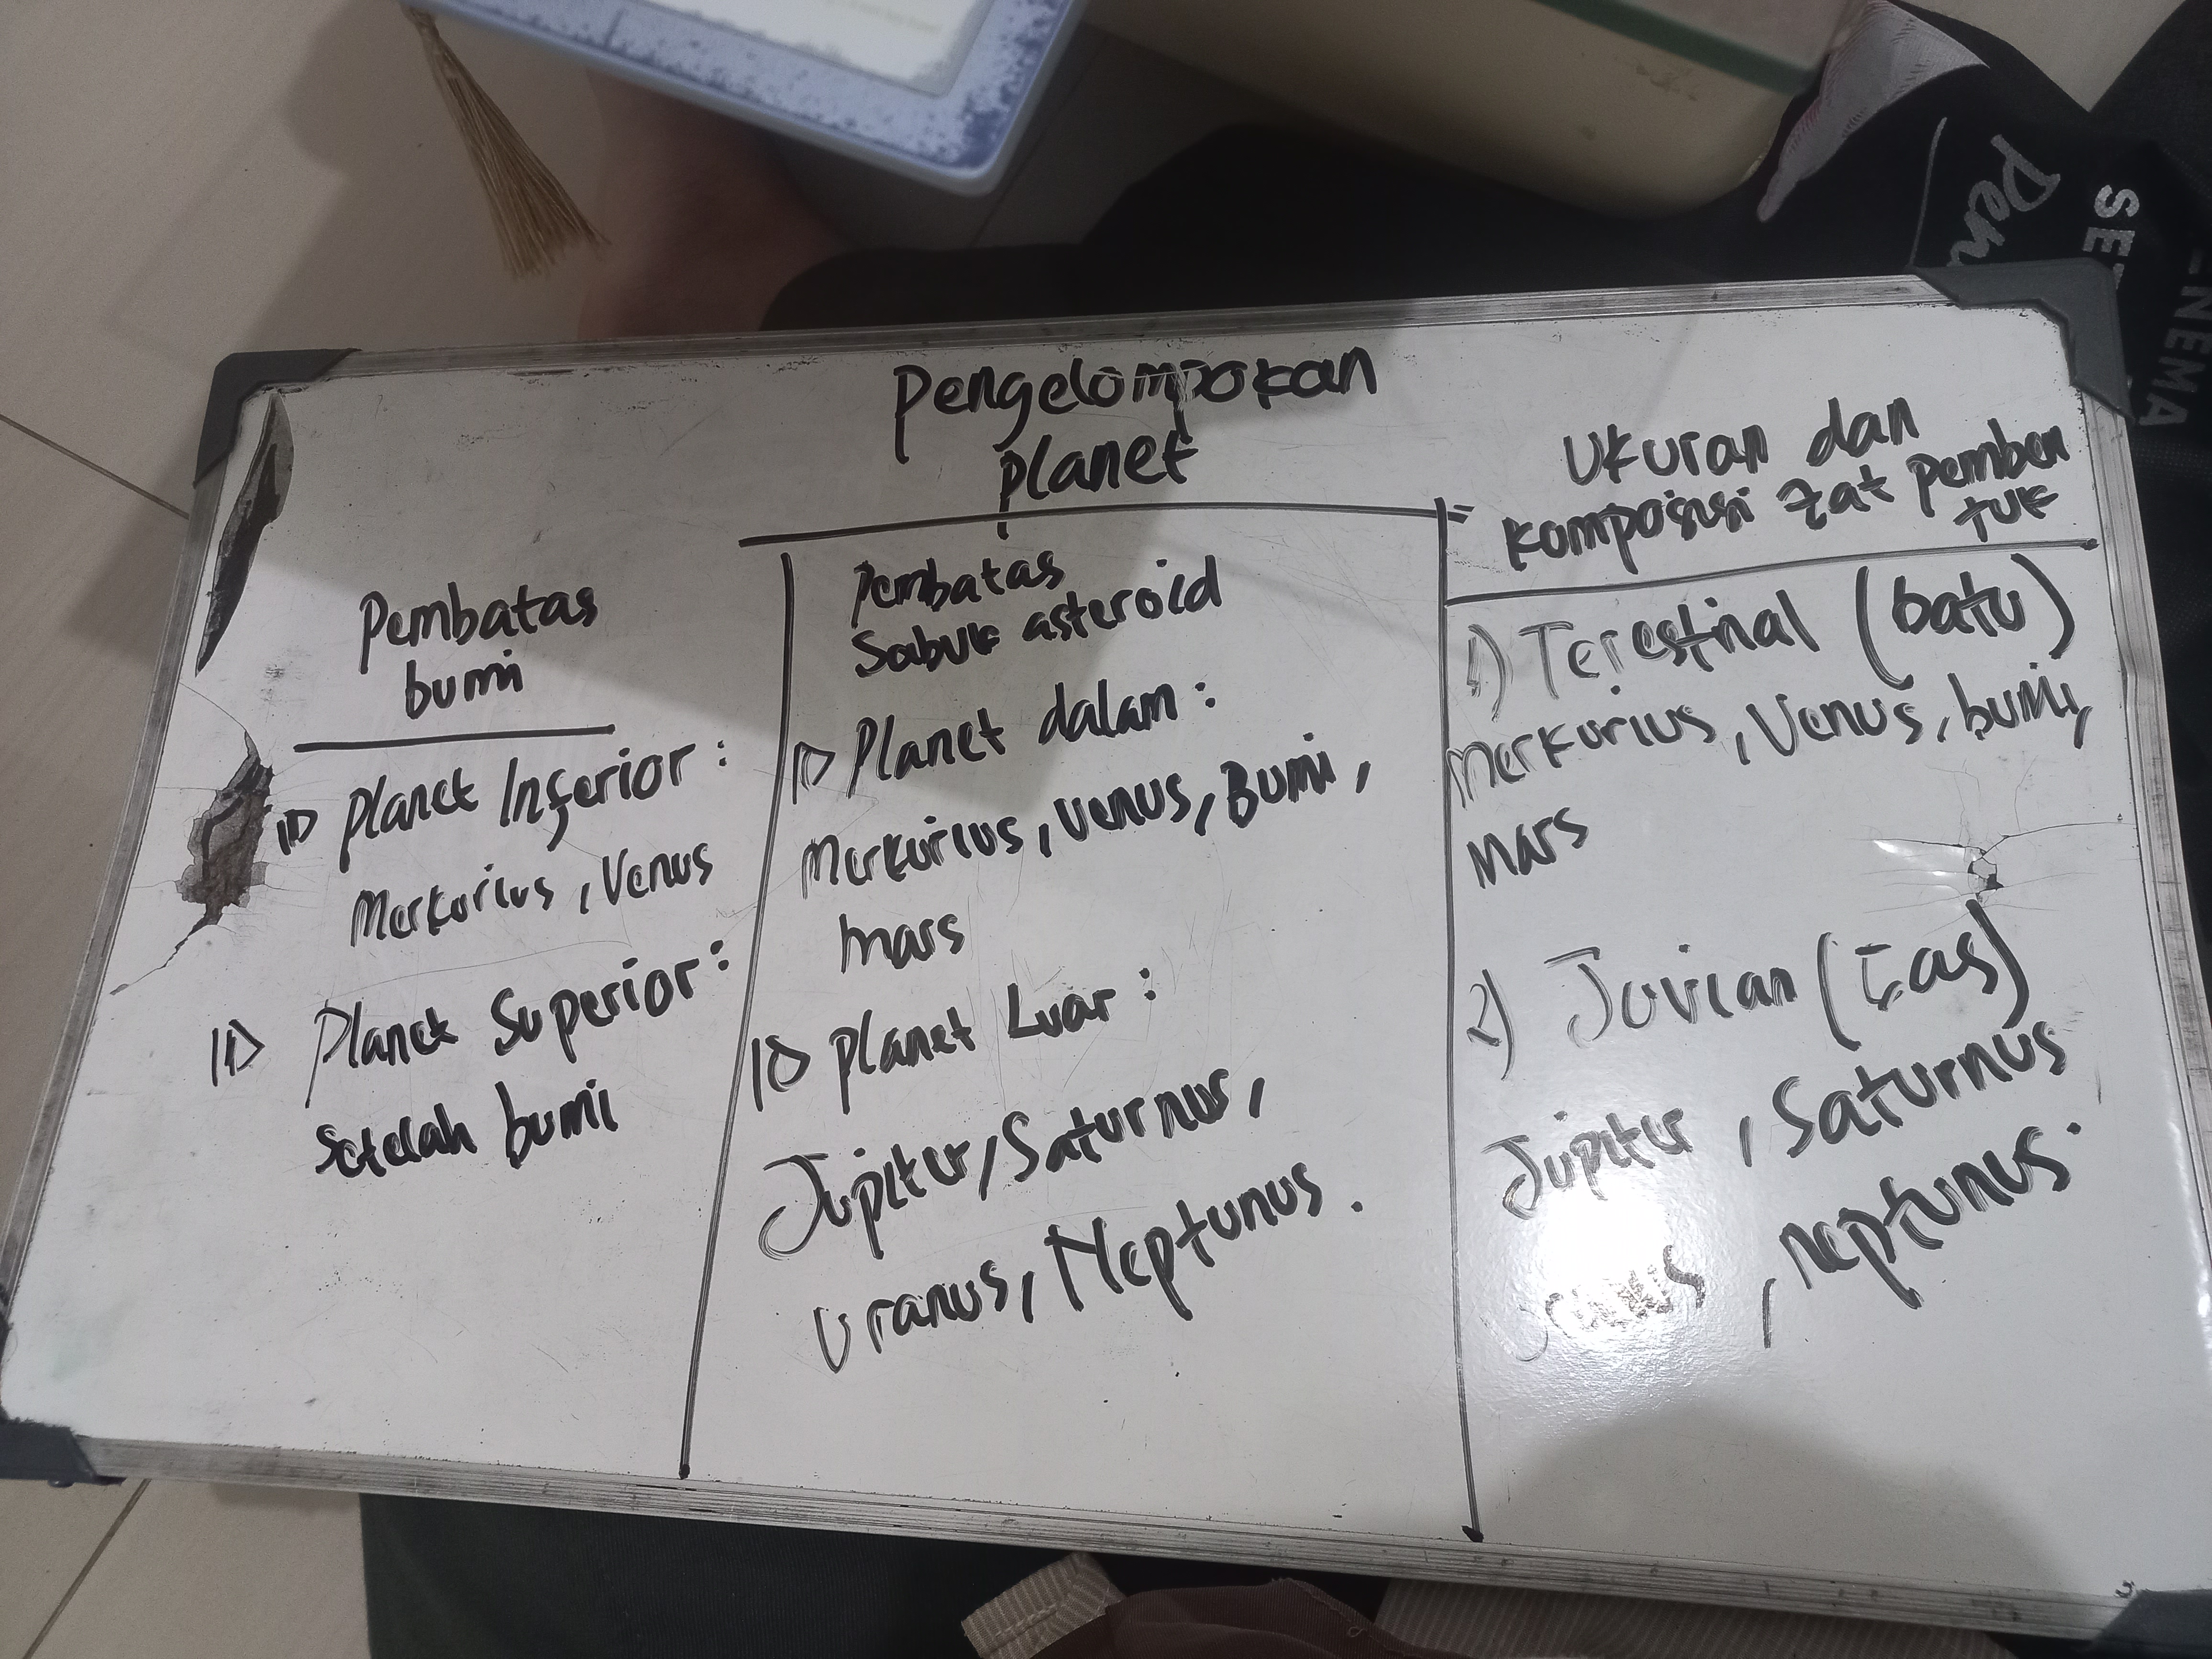 Pengelompokan
planet
Pembatas
bumi
Planet Inferior :
Merkurius, Venus
Planet Superior :
Setelah bumi
Pembatas
Sabuk asteroid
Planet dalam :
Merkurius, Venus, Bumi,
Mars
Planet Luar :
Jupiter, Saturnus,
Uranus, Neptunus.
Ukuran dan
komposisi zat pemben
tuk
1) Terestrial (batu)
Merkurius, Venus, bumi,
Mars
2) Jovian (Gas)
Jupiter, Saturnus
Uranus, neptunus.